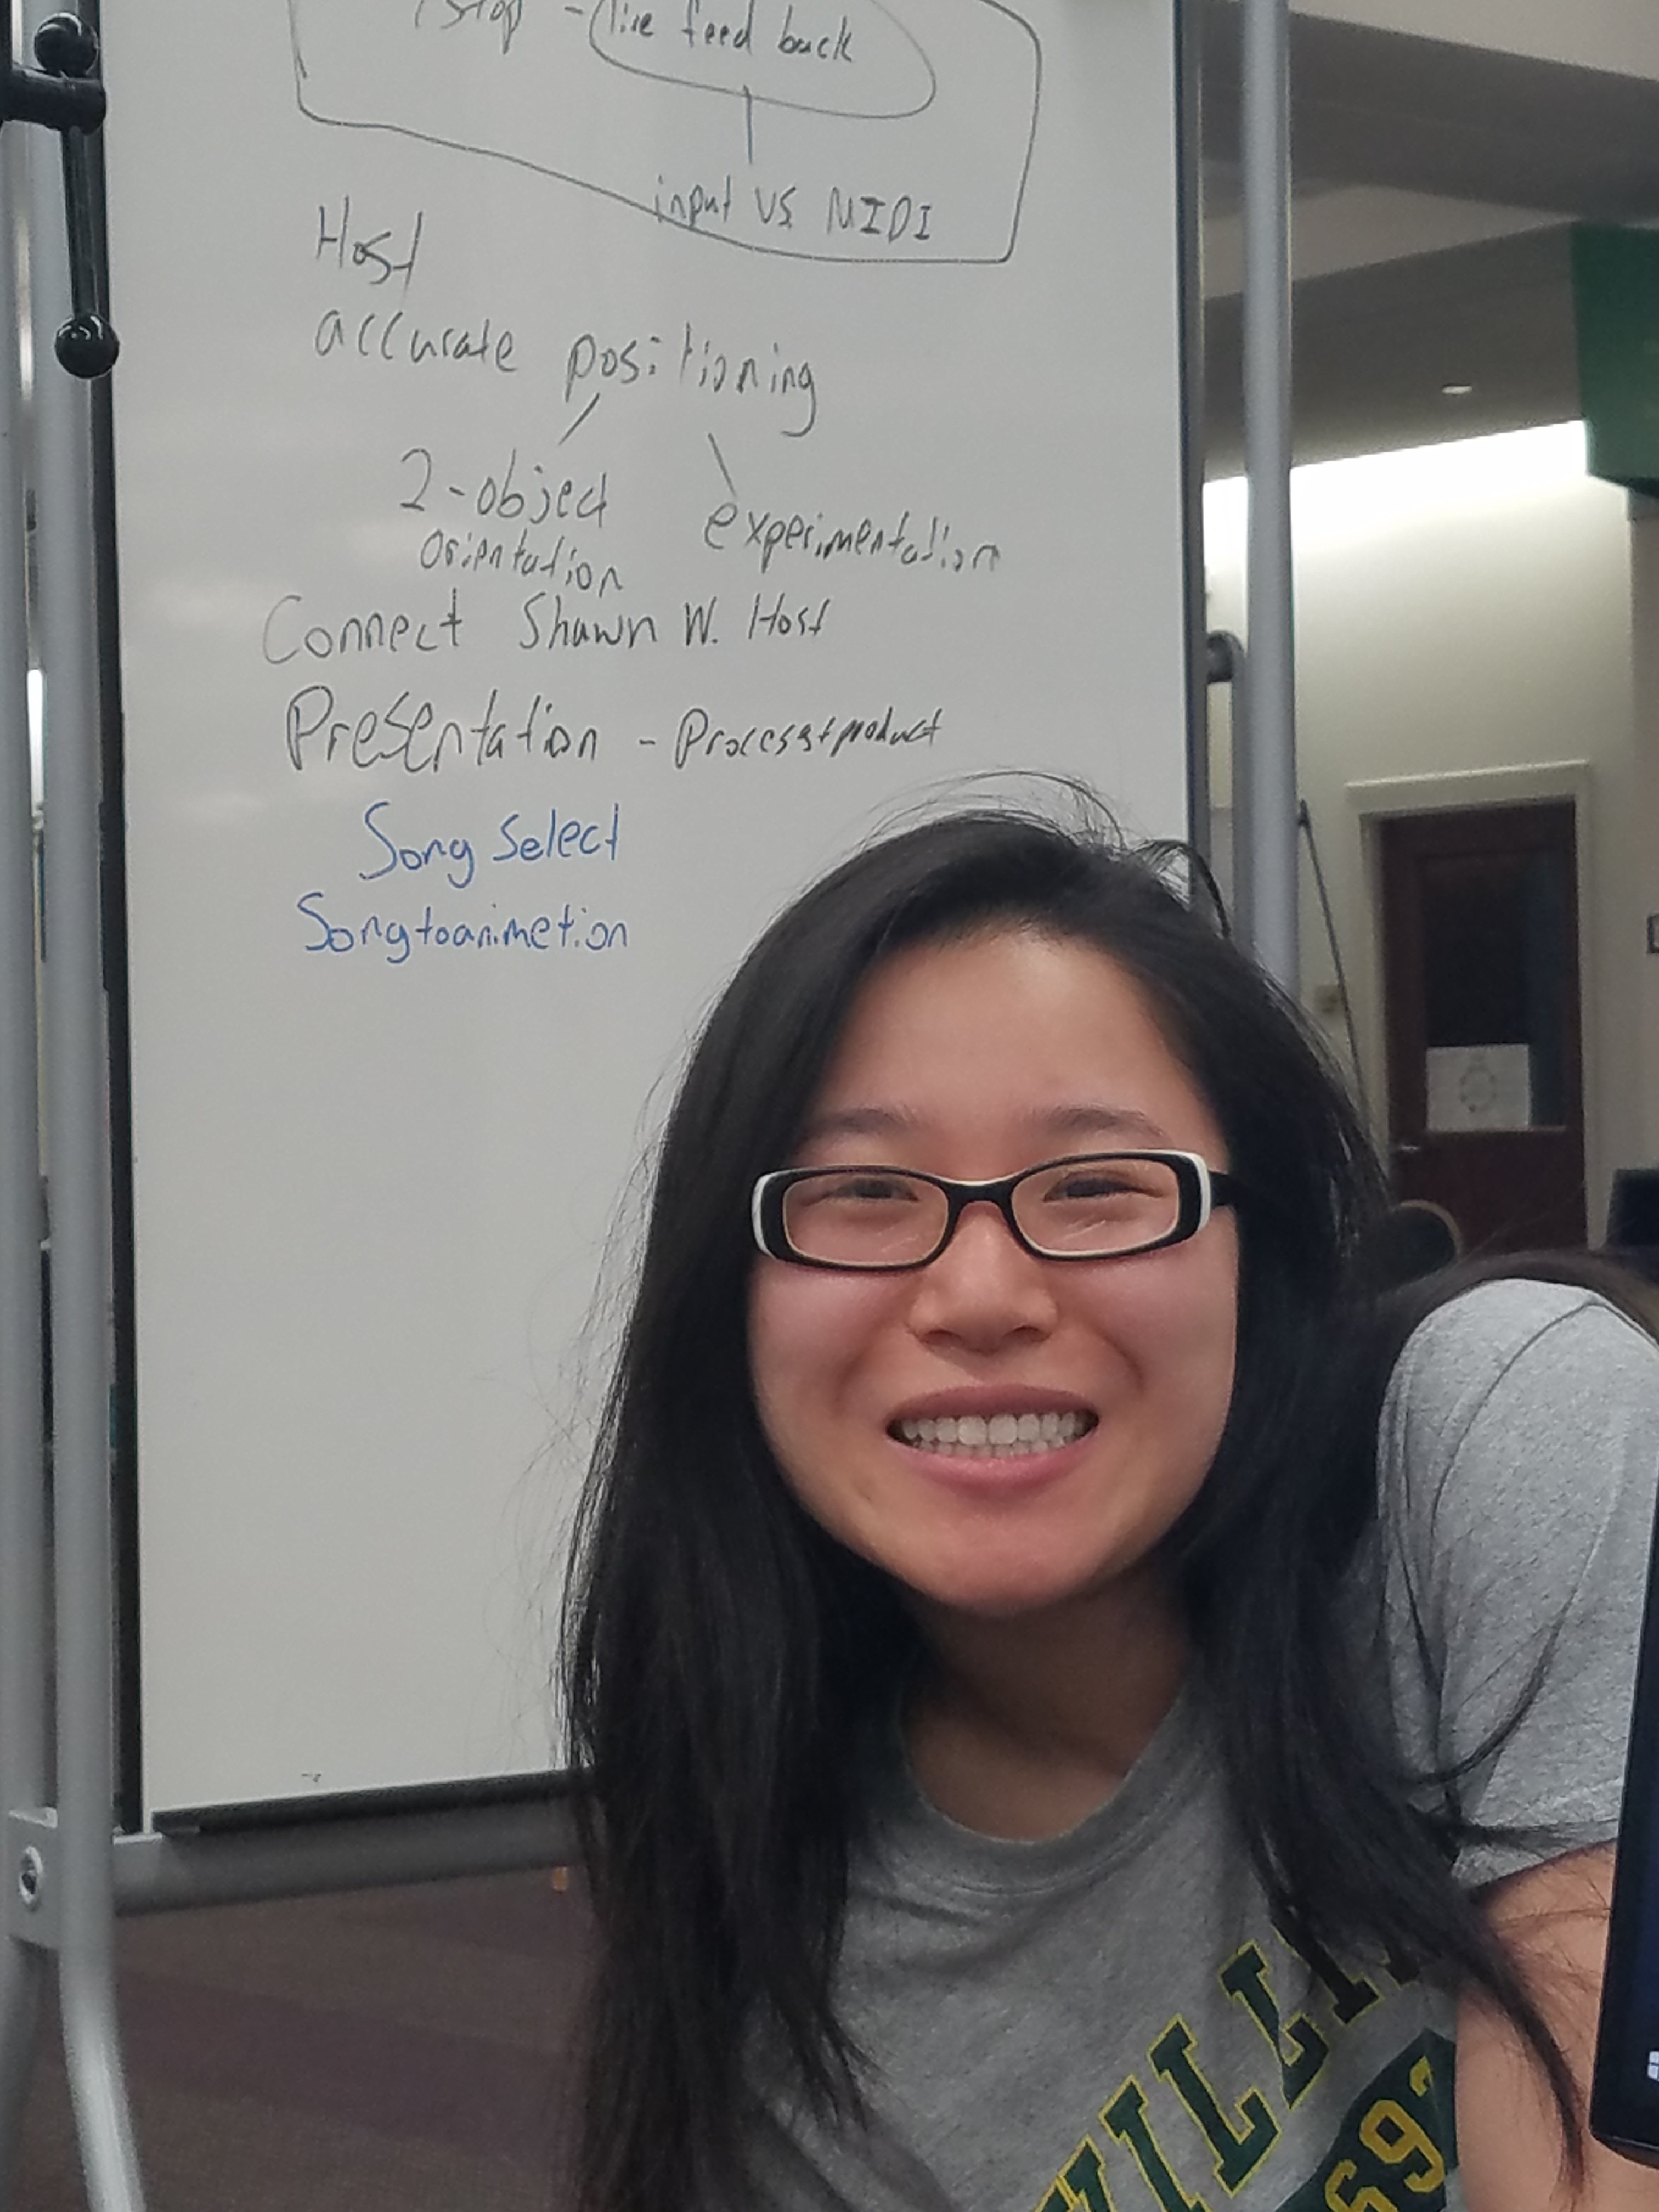 /stop - live feed back
input vs MIDI
Host
accurate positioning
2-object experimentation
orientation
Connect Shawn W. Host
Presentation - Process+product
Song Select
Songtoanimetion
WILLI
693